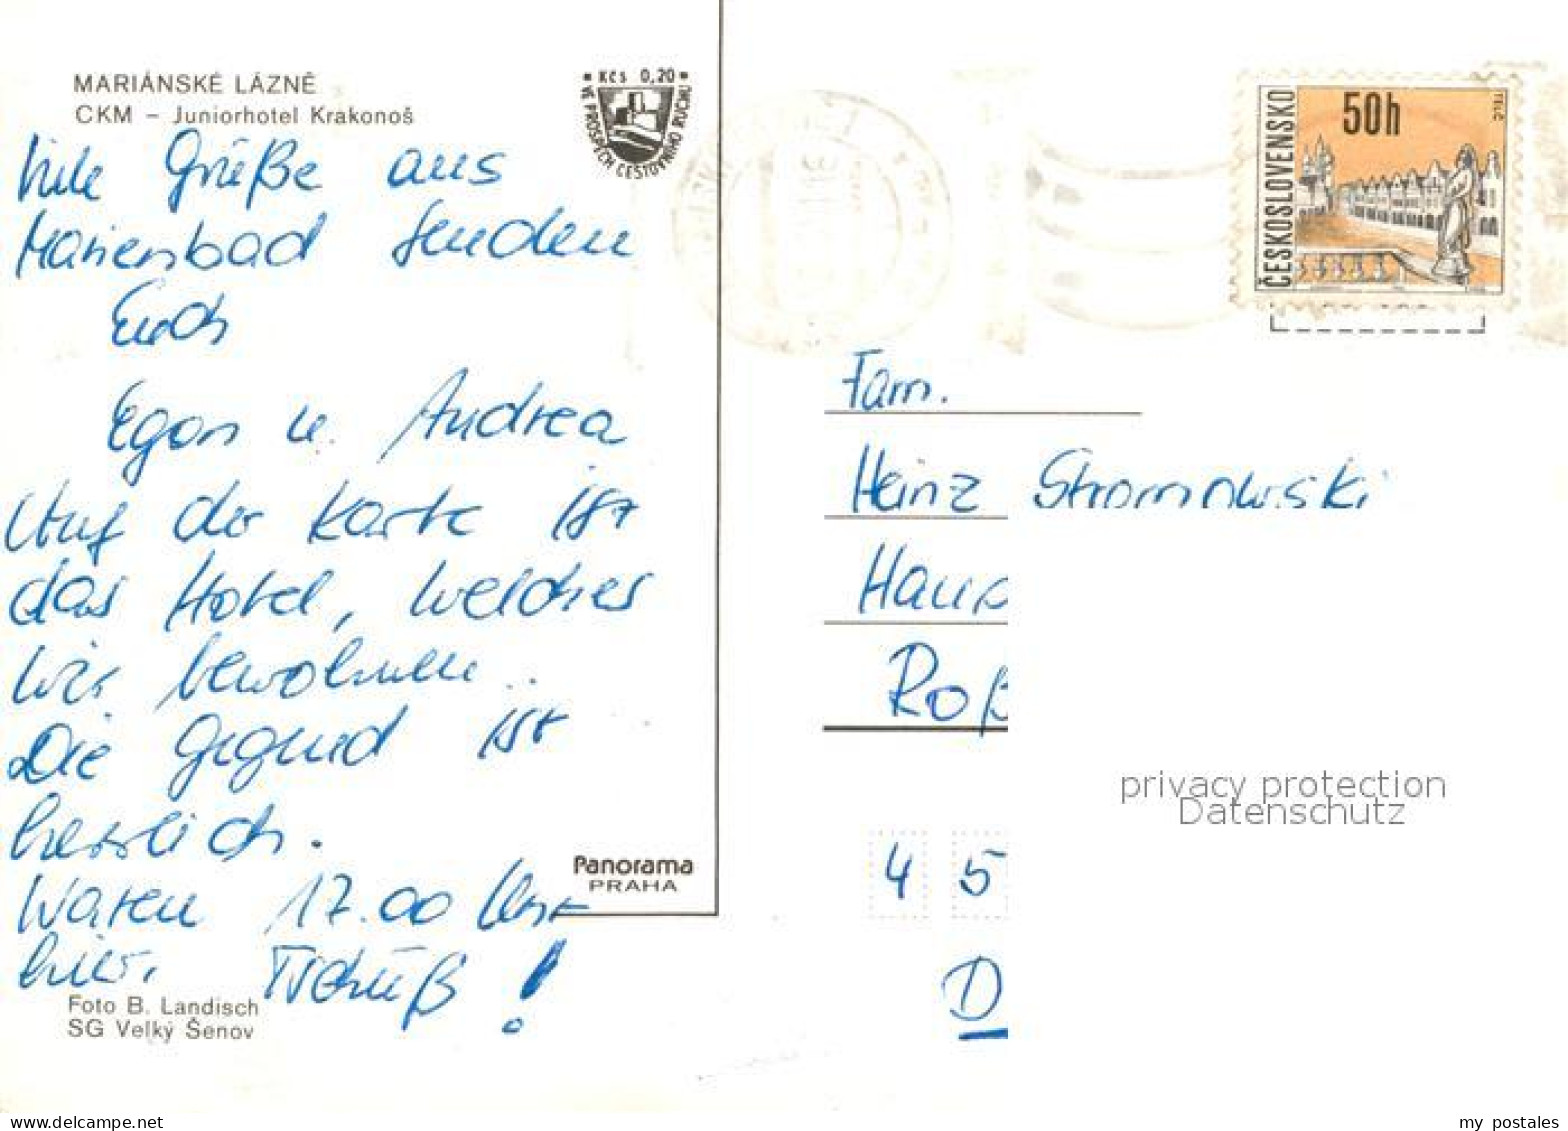 MARIÁNSKÉ LÁZNĚ
CKM – Juniorhotel Krakonoš
Kčs 0,20
VE PROSPĚCH CESTOVNÍHO RUCHU
Viele Grüße aus
Marienbad senden
Euch
Egon u. Andrea
Auf der Karte ist
das Hotel, welches
wir bewohnen.
Die Gegend ist
herrlich.
Waren 17.00 Uhr
hier. Tschüß!
Panorama
PRAHA
Foto B. Landisch
SG Velký Šenov
ČESKOSLOVENSKO
50h
TELČ
Fam.
Heinz Stromowski
Haup
Roß
privacy protection
Datenschutz
4 5
D
www.delcampe.net
my_postales